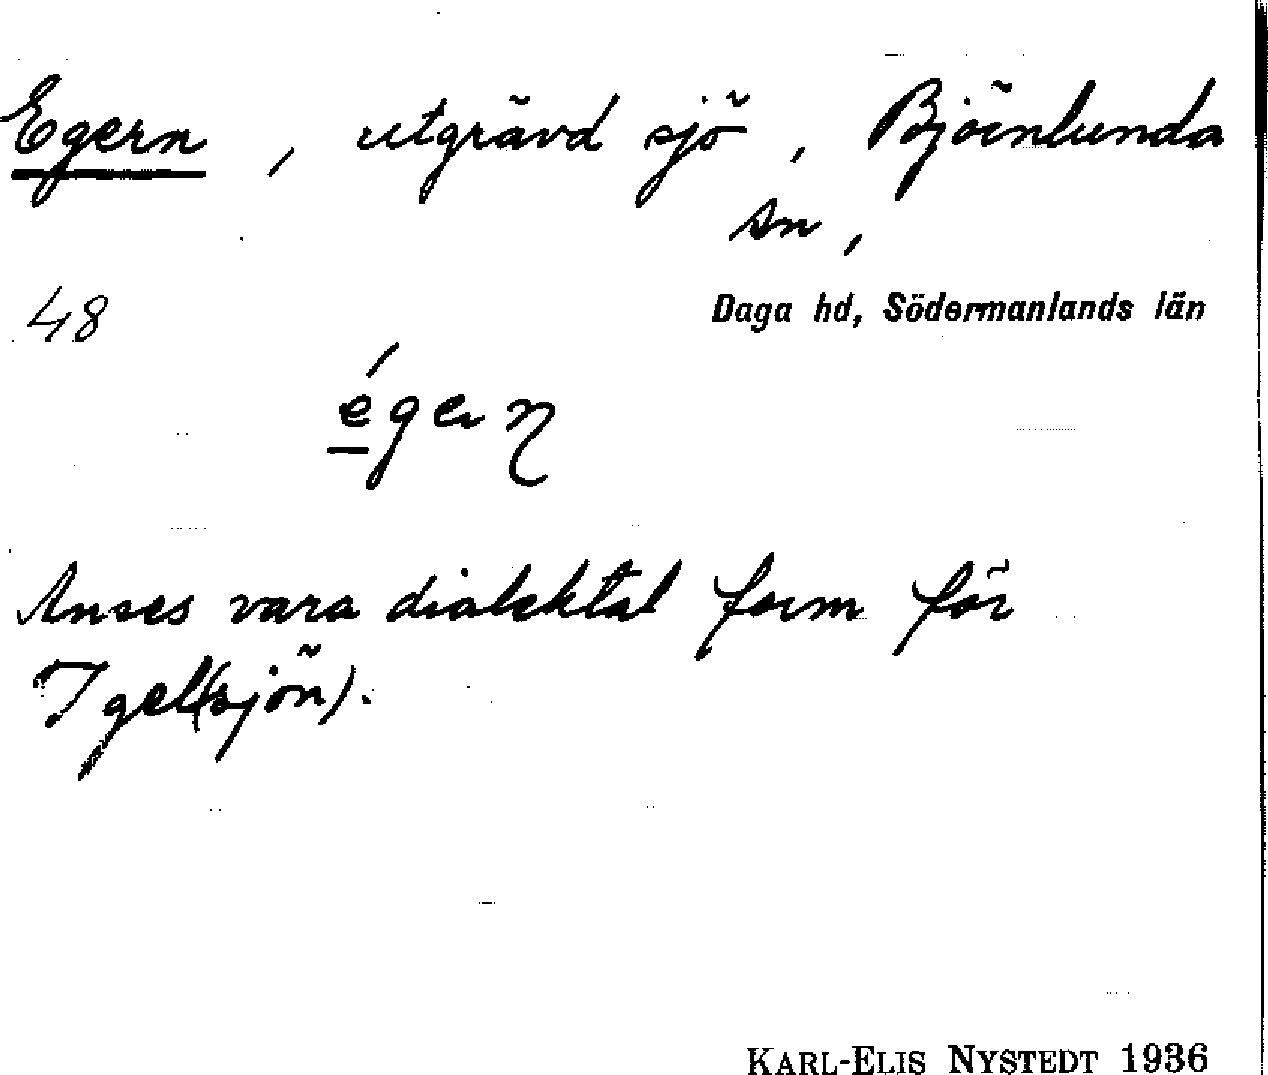 Egern, utgrävd sjö, Björnlunda
sn,
48
Daga hd, Södermanlands län
égerη
Anses vara dialektal form för
Igel(sjön).
KARL-ELIS NYSTEDT 1936